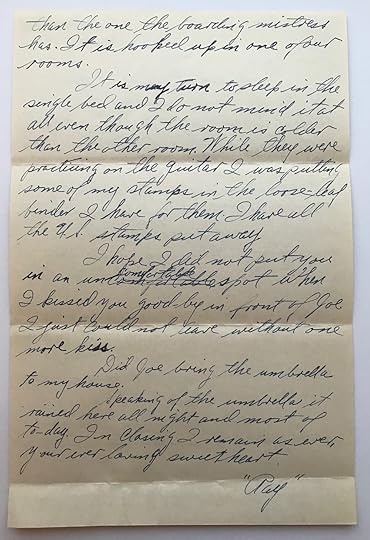 than the one the boarding mistress
has. It is hooked up in one of our
rooms.
It is my turn to sleep in the
single bed and I do not mind it at
all even though the room is colder
than the other room. While they were
practicing on the guitar I was putting
some of my stamps in the loose-leaf
binder I have for them. I have all
the U.S. stamps put away
I hope I did not put you
in an uncomfortable spot when
I kissed you good-by in front of Joe
I just could not leave without one
more kiss.
Did Joe bring the umbrella
to my house.
Speaking of the umbrella it
rained here all night and most of
to-day. In closing I remain as ever
your ever loving sweetheart
"Ray"